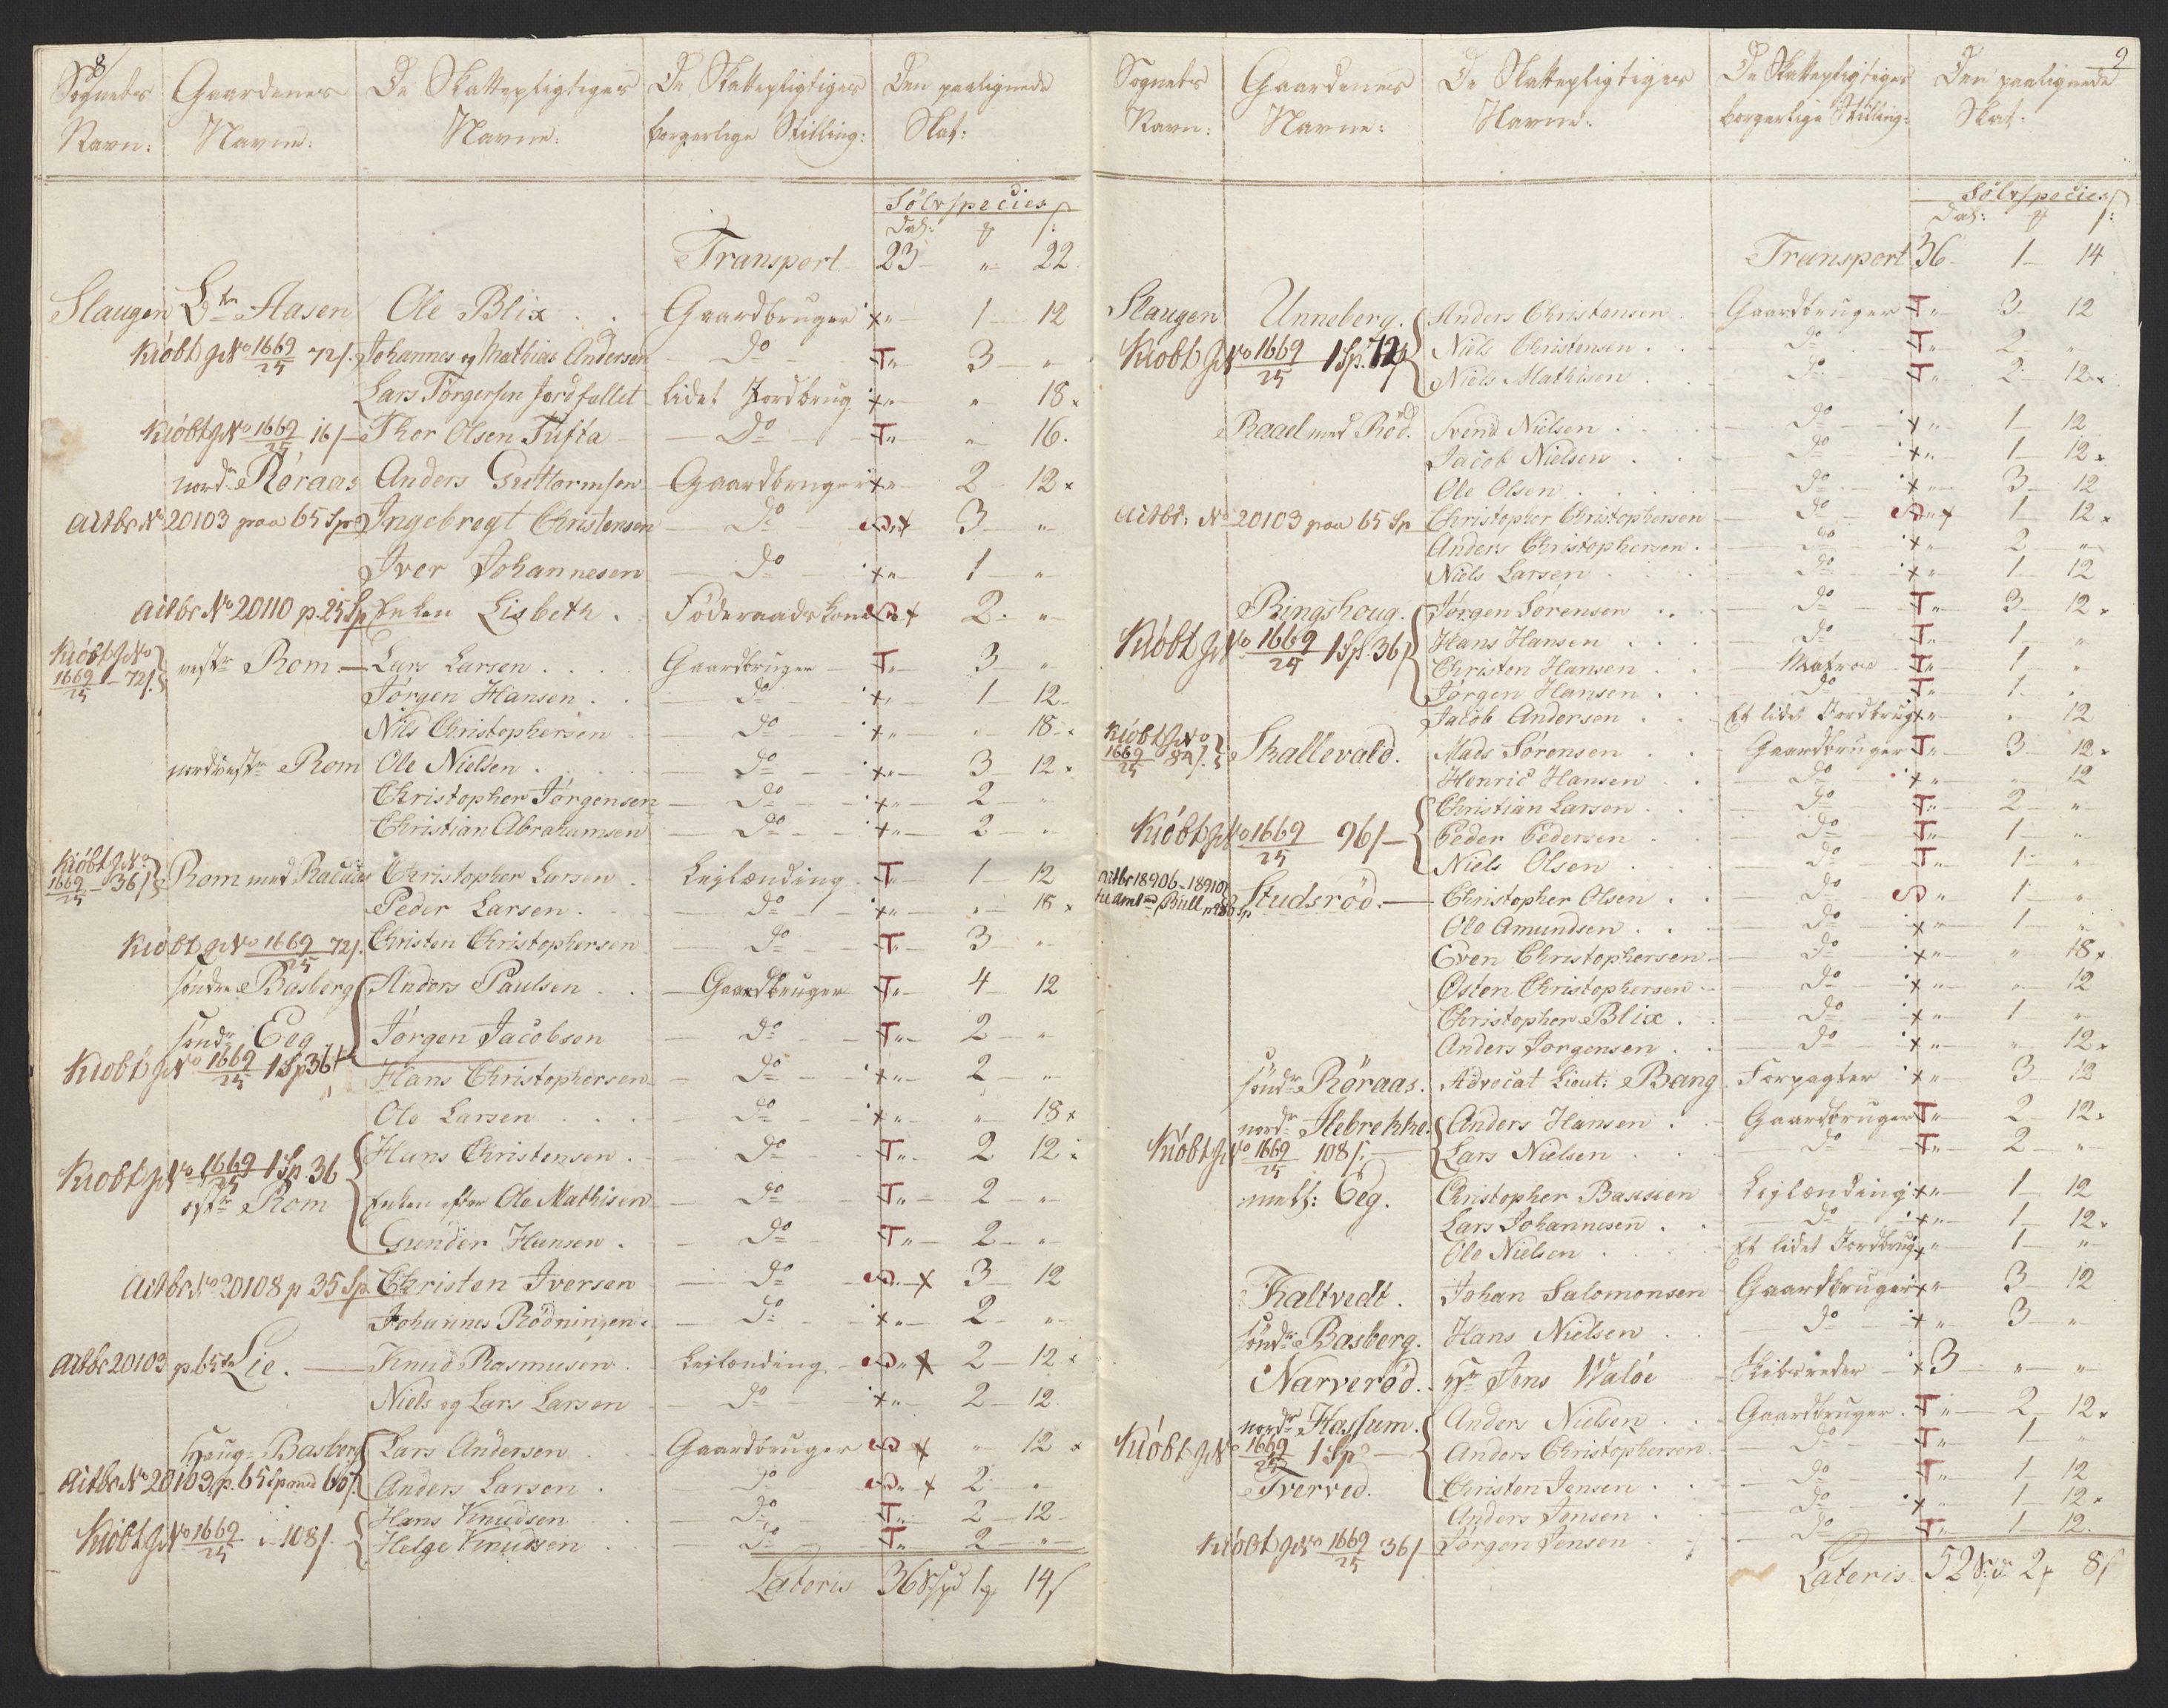 8
Sognets Gaardenes De Skattepligtiges De Skattepligtiges Den paalignede
Navn: Navne: Navne: borgerlige Stilling: Skat:
Sölvspecies
Dal: ß:
Transport 23 " 22
Slaugen Aasen Ole Blix Gaardbruger x " 1 12
Kiöbt No 1669/25 72ß Johannes og Mathias Andersen Do T " 3 "
Lars Torgersen Jordfallet lidet Jordbrug x " " 18 x
Kiöbt No 1669/25 16ß Thor Olsen Tufta Do T " " 16.
nordr Röraas Anders Guttormsen Gaardbruger x " 2 12 x
No 20103 paa 65 Sp Ingebregt Christensen Do x 3 "
Iver Johannesen Do x " 1 "
No 20110 p. 25 Sp Enken Lisbeth Föderaadskone x 2 "
Kiöbt No 1669/25 72ß vestr Rom Lars Larsen Gaardbruger T " 3 "
Jørgen Hansen Do x " 1 12
Nils Christophersen Do x " " 18 x
nordvestr Rom Ole Nielsen Do x " 3 12 x
Christopher Jørgensen Do x " 2 "
Christian Abrahamsen Do x " 2 "
Kiöbt No 1669/25 36ß Rom med Christopher Larsen Leylænding T " 1 12
Peder Larsen Do x " " 18 x
Kiöbt No 1669/25 72ß Christen Christophersen Do T " 3 "
søndre Basberg Anders Paulsen Gaardbruger T " 4 12
søndr Eeg Jørgen Jacobsen Do T " 2 "
Kiöbt No 1669/25 1 Sp 36ß Hans Christophersen Do x " 2 "
Ole Larsen Do x " " 18 x
Hans Christensen Do T " 2 12
Kiöbt No 1669/25 1 Sp. 36
østr Rom Enken efter Ole Mathisen Do T " 2 "
Gunder Hansen Do T " 2 "
No 20108 p 35 Sp. Christen Iversen Do x 3 12
Johannes Rödningen Do x " 2 "
20103 p 65 Lie. Knud Rasmusen Leylænding x 2 12 x
Niels og Lars Larsen Do x " 2 12
Houg-Basberg Lars Andersen Gaardbruger x " 12 x
No 20103 p. 65 Sp Anders Larsen Do x 2 "
Hans Knudsen Do T " 2 12
Kiöbt No 1669/25 108ß. Helge Knudsen Do T " 2 "
Lateris 36 1 14ß
9
Sognets Gaardenes De Skattepligtiges De Skattepligtiges Den paalignede
Navn: Navne: Navne: borgerlige Stilling: Skat:
Sölvspecies
Dal: ß:
Transport 36 1 14
Slaugen Unneberg. Anders Christensen Gaardbruger T " 3 12
Kiöbt No 1669/25 1 Sp. 72ß Niels Christensen Do T " 2 "
Niels Mathisen Do T " 2 12 x
Raael med Röd. Svend Nielsen Do x " 1 12
Jacob Nielsen Do x " 1 12 x
Ole Olsen Do x " 3 12
No 20103 paa 65 Sp Christopher Christophersen Do x 1 12 x
Anders Christophersen Do x " 2 "
Niels Larsen Do x " 1 12
Ringshoug. Jørgen Sørensen Do T " 3 12 x
Kiöbt No 1669/25 1 Sp. 36ß Hans Hansen Do T " 1 "
Christen Hansen Matros T " 1 "
Jørgen Hansen Do T " 1 "
Jacob Andersen Et lidet Jordbrug x " " 12
Kiöbt No 1669/25 84ß. Skallevald. Mads Sørensen Gaardbruger T " 3 12 x
Henric Hansen Do x " " 12
Christian Larsen Do T " 2 "
Kiöbt No 1669/25 96ß Peder Pedersen Do T " 1 "
Niels Olsen Do T " 1 "
18906-18910 Studsröd. Christopher Olsen Do " 1 "
Ole Amundsen Do x " 1 "
Even Christophersen Do x " " 18 x
Østen Christophersen Do x " " 12
Christopher Blix Do x " 1 "
Anders Jørgensen Do x " " 12 x
söndr Röraas. Advocat Lieut: Bang Forpagter x " 3 12
nordr Ilebrekke. Anders Hansen Gaardbruger T " 2 12 x
Kiöbt No 1669/25 108ß. Lars Nielsen Do T " 2 "
mell: Eeg. Christopher Bassien Leylænding x " 1 12
Lars Johannesen Do x " 1 12 x
Ole Nielsen Et lidet Jordbrug x " 1 "
Kaltvedt. Johan Salomonsen Gaardbruger x " 3 12
söndr Basberg. Hans Nielsen Do x " 3 "
Narveröd. Hr Jens Waløe Skibsreder x 3 " "
nordr Hassum. Anders Nielsen Gaardbruger T " 2 12 x
Kiöbt No 1669/25 1 Sp Anders Christophersen Do T " 1 "
Tverved. Christen Jensen Do T " 1 12
Anders Jensen Do x " 1 12 x
Kiöbt No 1669/25 36ß Jørgen Jensen Do T " 1 12.
Lateris 52 2 8ß